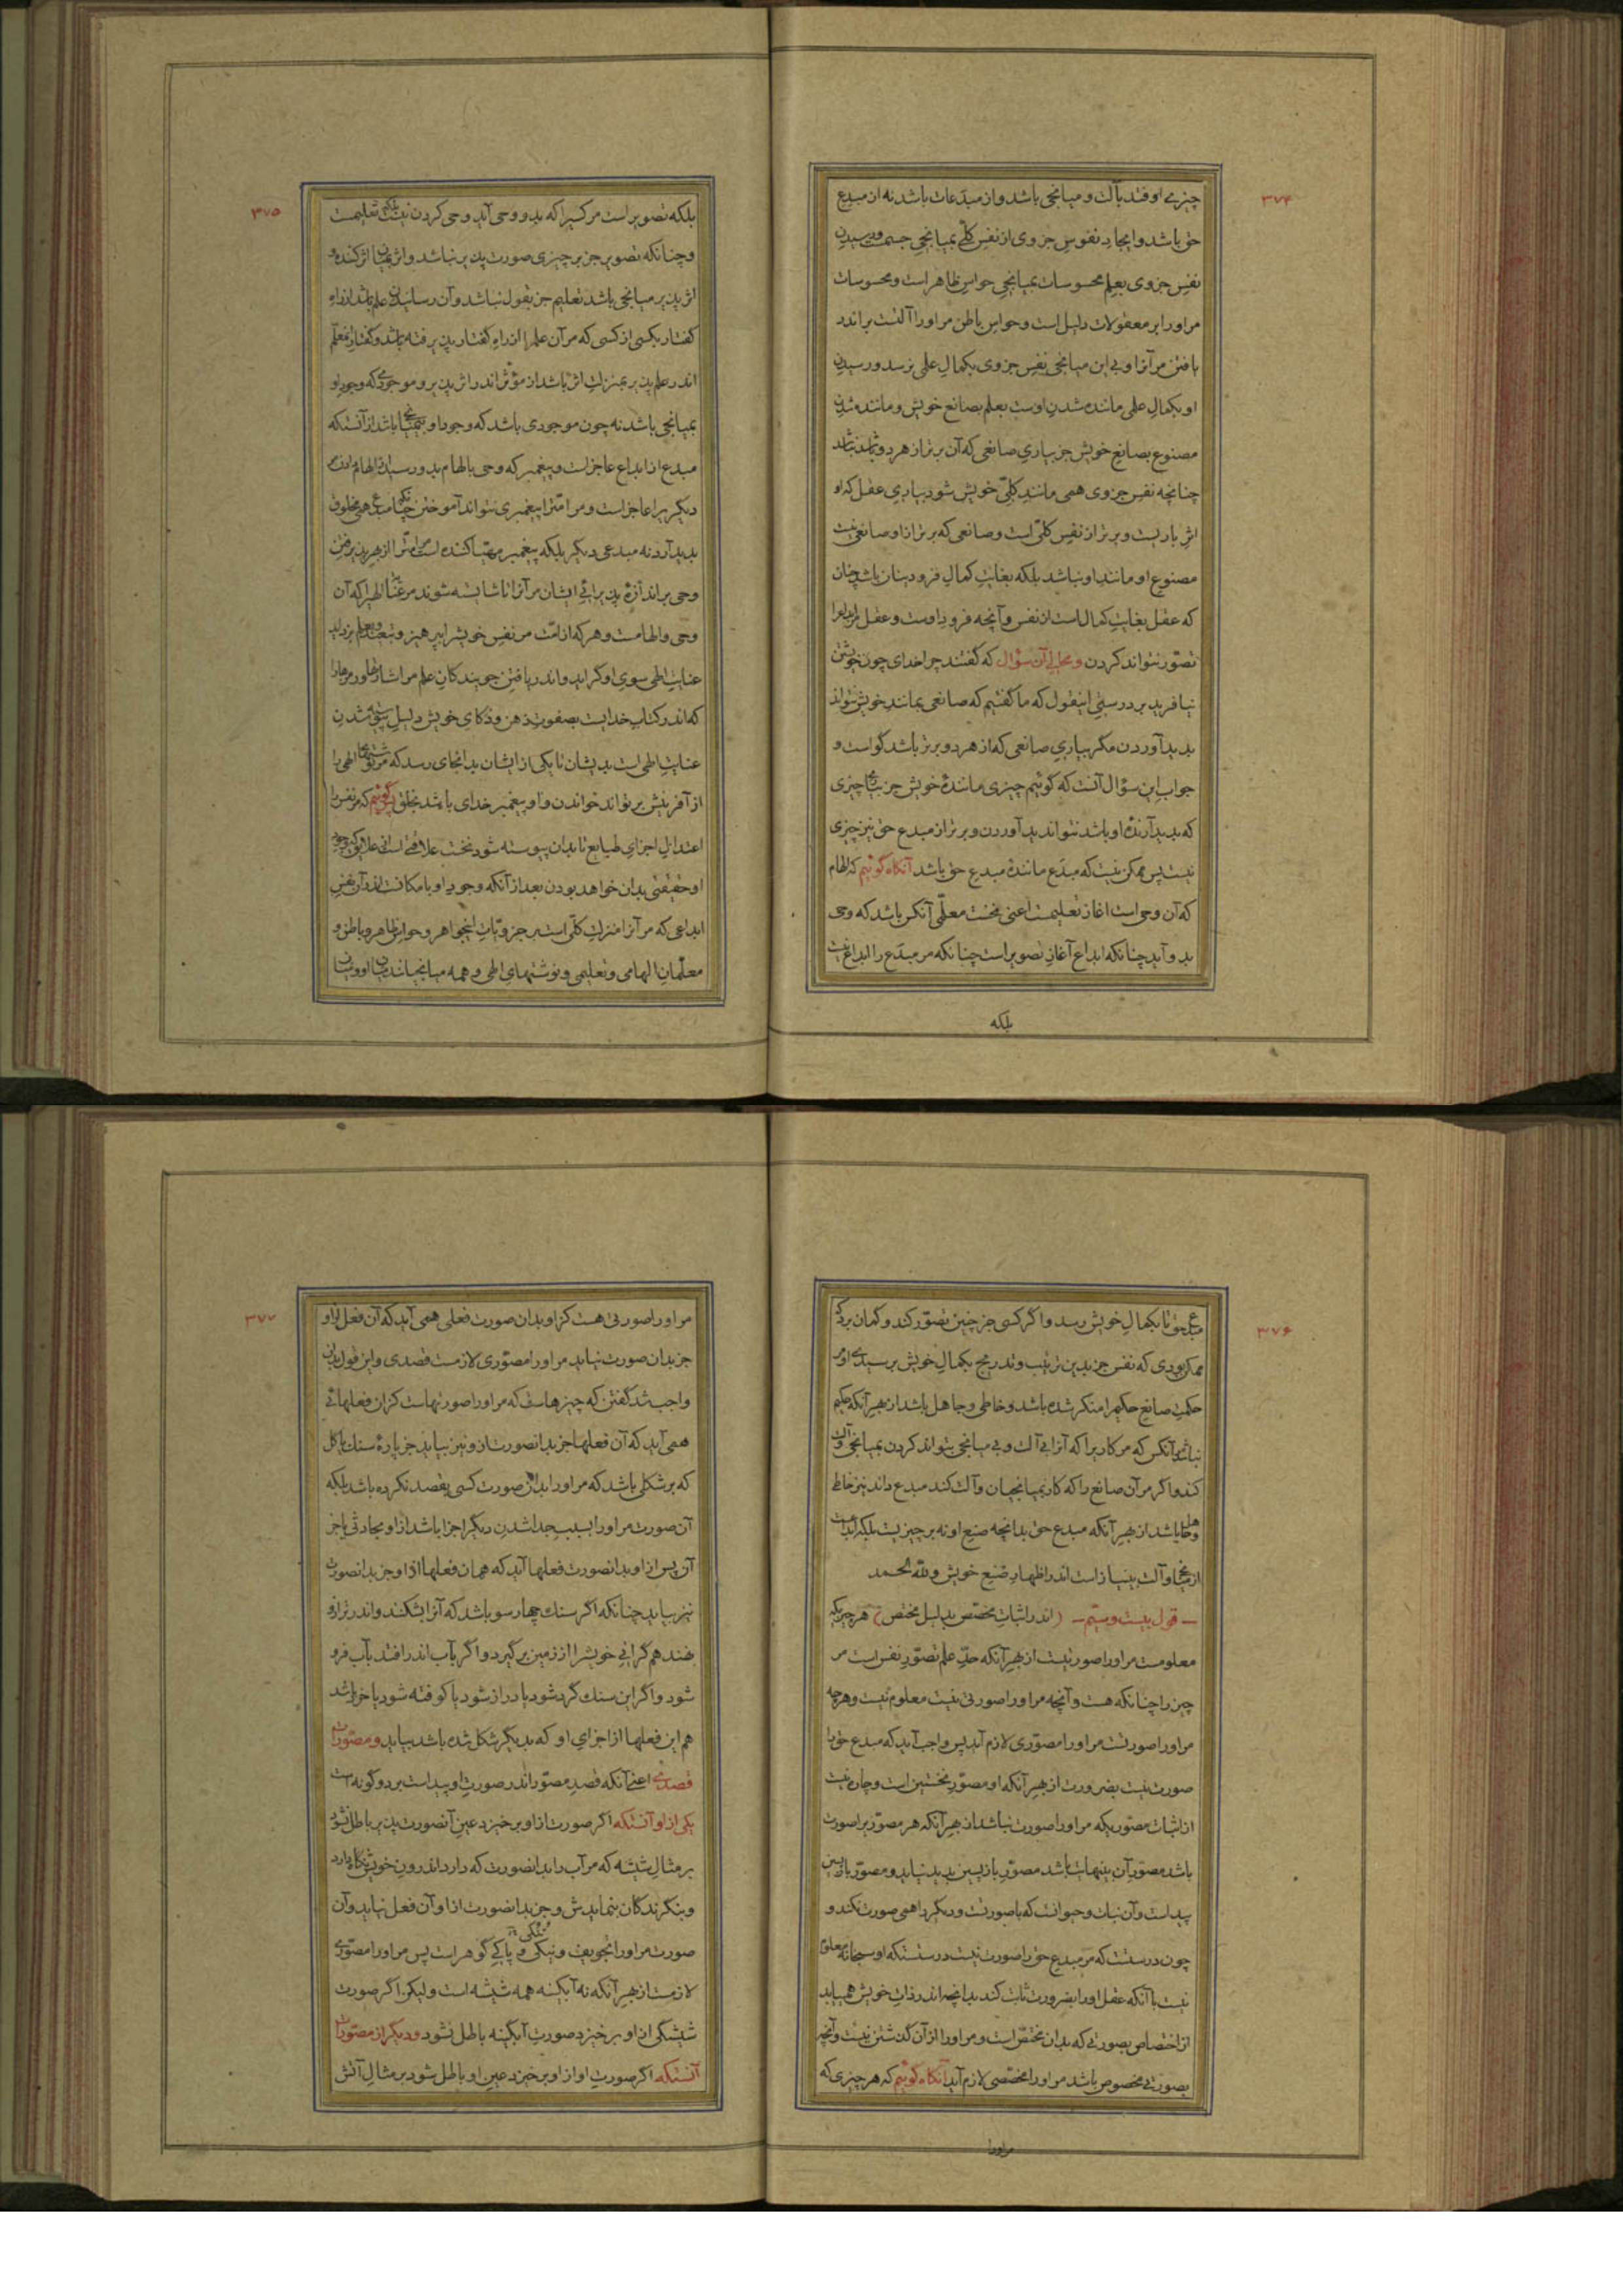 ۳۷۴
چیزی اوفتد بآلت و میانجی باشد و از مبدَعات باشد نه از مبدِع
حق باشد و ایجاد نفوس جزوی از نفس کلّی بمیانجی جسمست و رسیدن
نفس جزوی بعلم محسوسات بمیانجی حواس ظاهر است و محسوسات
مر او را بر معقولات دلیل است و حواس باطن مر او را آلتست بر اندر
یافتن مر آنرا و بی این میانجی نفس جزوی بکمال علمی نرسد و رسیدن
او بکمال علمی ماننده شدن اوست بعلم بصانع خویش و ماننده شدن
مصنوع بصانع خویش جز بیاری صانعی که آن برتر از هر دو باشد نباشد
چنانچه نفس جزوی همی مانند کلّی خویش شود بیاری عقل که او
اثر باریست و برتر از نفس کلّی است و صانعی که برتر از او صانعی نیست
مصنوع او مانند او نباشد بلکه بغایت کمال فرود از آن باشد چنان
که عقل بغایت کمال است از نفس و آنچه فرود اوست و عقل مر ابداع را
تصوّر نتواند کردن و محالی آن سؤال که گفتند چرا خدای چون خویشتن
نیافرید بر درستی اینقول که ما گفتیم که صانعی بمانند خویش نتواند
پدید آوردن مگر بیاری صانعی که از هر دو برتر باشد گواست و
جواب این سؤال آنست که گوئیم چیزی ماننده خویش جز بیاری چیزی
که پدید آرنده او باشد نتواند پدید آوردن و برتر از مبدع حق نیز چیزی
نیست پس ممکن نیست که مبدَع ماننده مبدِع حق باشد آنگاه گوئیم که الهام
که آن وحی است آغاز تعلیمست اعنی نخست معلّمی آنکس باشد که وحی
بدو آید چنانکه ابداع آغاز تصویر است چنانکه مر مبدَع را ابداع نیست
بلکه
۳۷۵
بلکه تصویر است مر کسیرا که بدو وحی آید وحی کردن نیست بلکه تعلیمست
و چنانکه تصویر جز بر چیزی صورت پذیر نباشد و اثر بمیان اثر کننده و
اثر پذیر میانجی باشد تعلیم جز بقول نباشد و آن رسانیدن علم باشد از راه
گفتار بکسی از کسی که مر آن علم را از راه گفتار پذیرفته باشد و گفتار معلّم
اندر علم پذیر بمنزلت اثر باشد از مؤثر اندر اثر پذیر و موجودی که وجود او
بمیانجی باشد نه چون موجودی باشد که وجود او بی میانجی باشد از آنستکه
مبدع از ابداع عاجز است و پیغمبر که وحی بالهام بدو رسید از الهام دادن مر
دیگریرا عاجز است و مر امّترا پیغمبری نتواند آموختن چنانکه مبدع همی مخلوق
پدید آرد نه مبدعی دیگر بلکه پیغمبر مهیّا کننده است مر امّت را از بهر پذیرفتن
وحی بر اندازه پذیرائی ایشان مر آنرا تا شایسته شوند مر عنایت الهی را که آن
وحی و الهامست و هر که از امّت مر نفس خویش را بپرهیز و تعبّد و علم بزداید
عنایت الهی سوی او گراید و اندر یافتن جویندگان علم مر اشارتها و رمزها را
که اندر کتاب خدایست بصفوت ذهن و ذکای خویش دلیل پیوسته شدن
عنایت الهی است بدیشان تا یکی از ایشان بدانجای رسد که مر نوشتهای الهی را
از آفرینش بر تواند خواندن و او پیغمبر خدای باشد بخلق پس گوئیم که مر نفس را
اعتدال اجزای طبایع تا بدان پیوسته شود نخست علاقتی است از علایق که وجود
او حقیقتی بدان خواهد بودن بعد از آنکه وجود او بامکانست اندر آن نفس
ابداعی که مر آنرا منزلت کلّی است بر جزویّات اینجواهر و حواس ظاهر و باطن و
معلّمان الهامی و تعلیمی و نوشتهای الهی و همه میانجیانند میان او و میان
۳۷۶
مبدع حق تا بکمال خویش رسد و اگر کسی جز چنین تصوّر کند و گمان برد که
ممکن بودی که نفس جز بدین ترتیب و تدریج بکمال خویش برسیدی او مر
حکمت صانع حکیم را منکر شده باشد و خاطی و جاهل باشد از بهر آنکه حکیم
نباشد آنکس که مر کاریرا که آنرا بی آلت و بی میانجی بتواند کردن بمیانجی و آلت
کند و اگر مر آن صانع را که کار بمیانجیان و آلت کند مبدع داند نیز خاطی
و جاهل باشد از بهر آنکه مبدع حق بدانچه صنع او نه بر چیزیست بلکه ابداعست
از میانجی و آلت بی نیاز است اندر اظهار صنع خویش و للّه الحمد
– قول بیست و ستیم – (اندر اثبات مخصّص بدلیل مختص) هر چیزیکه
معلومست مر او را صورتیست از بهر آنکه حدّ علم تصوّر نفس است مر
چیز را چنانکه هست و آنچه مر او را صورتی نیست معلوم نیست و هر چه
مر او را صورتست مر او را مصوّری لازم آید پس واجب آید که مبدع حق را
صورت نیست بضرورت از بهر آنکه او مصوّر نخستین است و چاره نیست
از اثبات مصوّریکه مر او را صورت نباشد از بهر آنکه هر مصوّر بر صورت
باشد مصوّر آن بینهایت باشد مصوّر بازپسین پدید نیاید و مصوّر بازپسین
پیداست و آن نبات و حیوانست که با صورتست و دیگر را همی صورت نکند و
چون درستست که مر مبدع حق را صورت نیست درستستکه او سبحانه معلوم
نیست با آنکه عقل او را بضرورت ثابت کند بدانچه اندر ذات خویش همی یابد
از اختصاص بصورتی که بدان مختصّ است و مر او را از آن گذشتن نیست و آنچه
بصورتی مخصوص باشد مر او را مخصّصی لازم آید آنگاه گوئیم که هر چیزی که
مر او را
۳۷۷
مر او را صورتی هست کز او بدان صورت فعلی همی آید که آن فعل از او
جز بدان صورت نیاید مر او را مصوّری لازمست قصدی و این قول بدان
واجب شد گفتن که چیزهاست که مر او را صورتهاست کز ان فعلهائی
همی آید که آن فعلها جز بدانصورت از و نیز بیاید جز پاره سنگ یا گل
که بر شکلی باشد که مر او را بدان صورت کسی بقصد نکرده باشد بلکه
آن صورت مر او را بسبب جدا شدن دیگر اجزا باشد از او بحادثی یا جز
آن پس از او بدانصورت فعلها آید که همان فعلها از او جز بدانصورت
نیز بیاید چنانکه اگر سنگ چهار سو باشد که آنرا بشکنند و اندر ترازو
نهند هم گرانی خویشرا از زمین بر گیرد و اگر بآب اندر افتد بآب فرو
شود و اگر این سنگ گرد شود یا دراز شود یا کوفته شود یا خرد باشد
هم این فعلها از اجزای او که بدیگر شکل شده باشد بیاید و مصوّرات
قصدی اعنی آنکه قصد مصوّر اندر صورت او پیداست بر دو گونه است
یکی از او آنستکه اگر صورت از او برخیزد عین آنصورت پذیر باطل نشود
بر مثال شیشه که مر آب را بدانصورت که دارد اندرون خویش نگاه دارد
و بنگرندگان بنمایدش و جز بدانصورت از او آن فعل نیاید و آن
صورت مر او را تجویف و تنکی و پاکی گوهر است پس مر او را مصوّری
لازمست از بهر آنکه نه آبگینه همه شیشه است ولیکن اگر صورت
شیشگی از او برخیزد صورت آبگینه باطل نشود و دیگر از مصوّرات
آنستکه اگر صورت او از او برخیزد عین او باطل شود بر مثال آتش